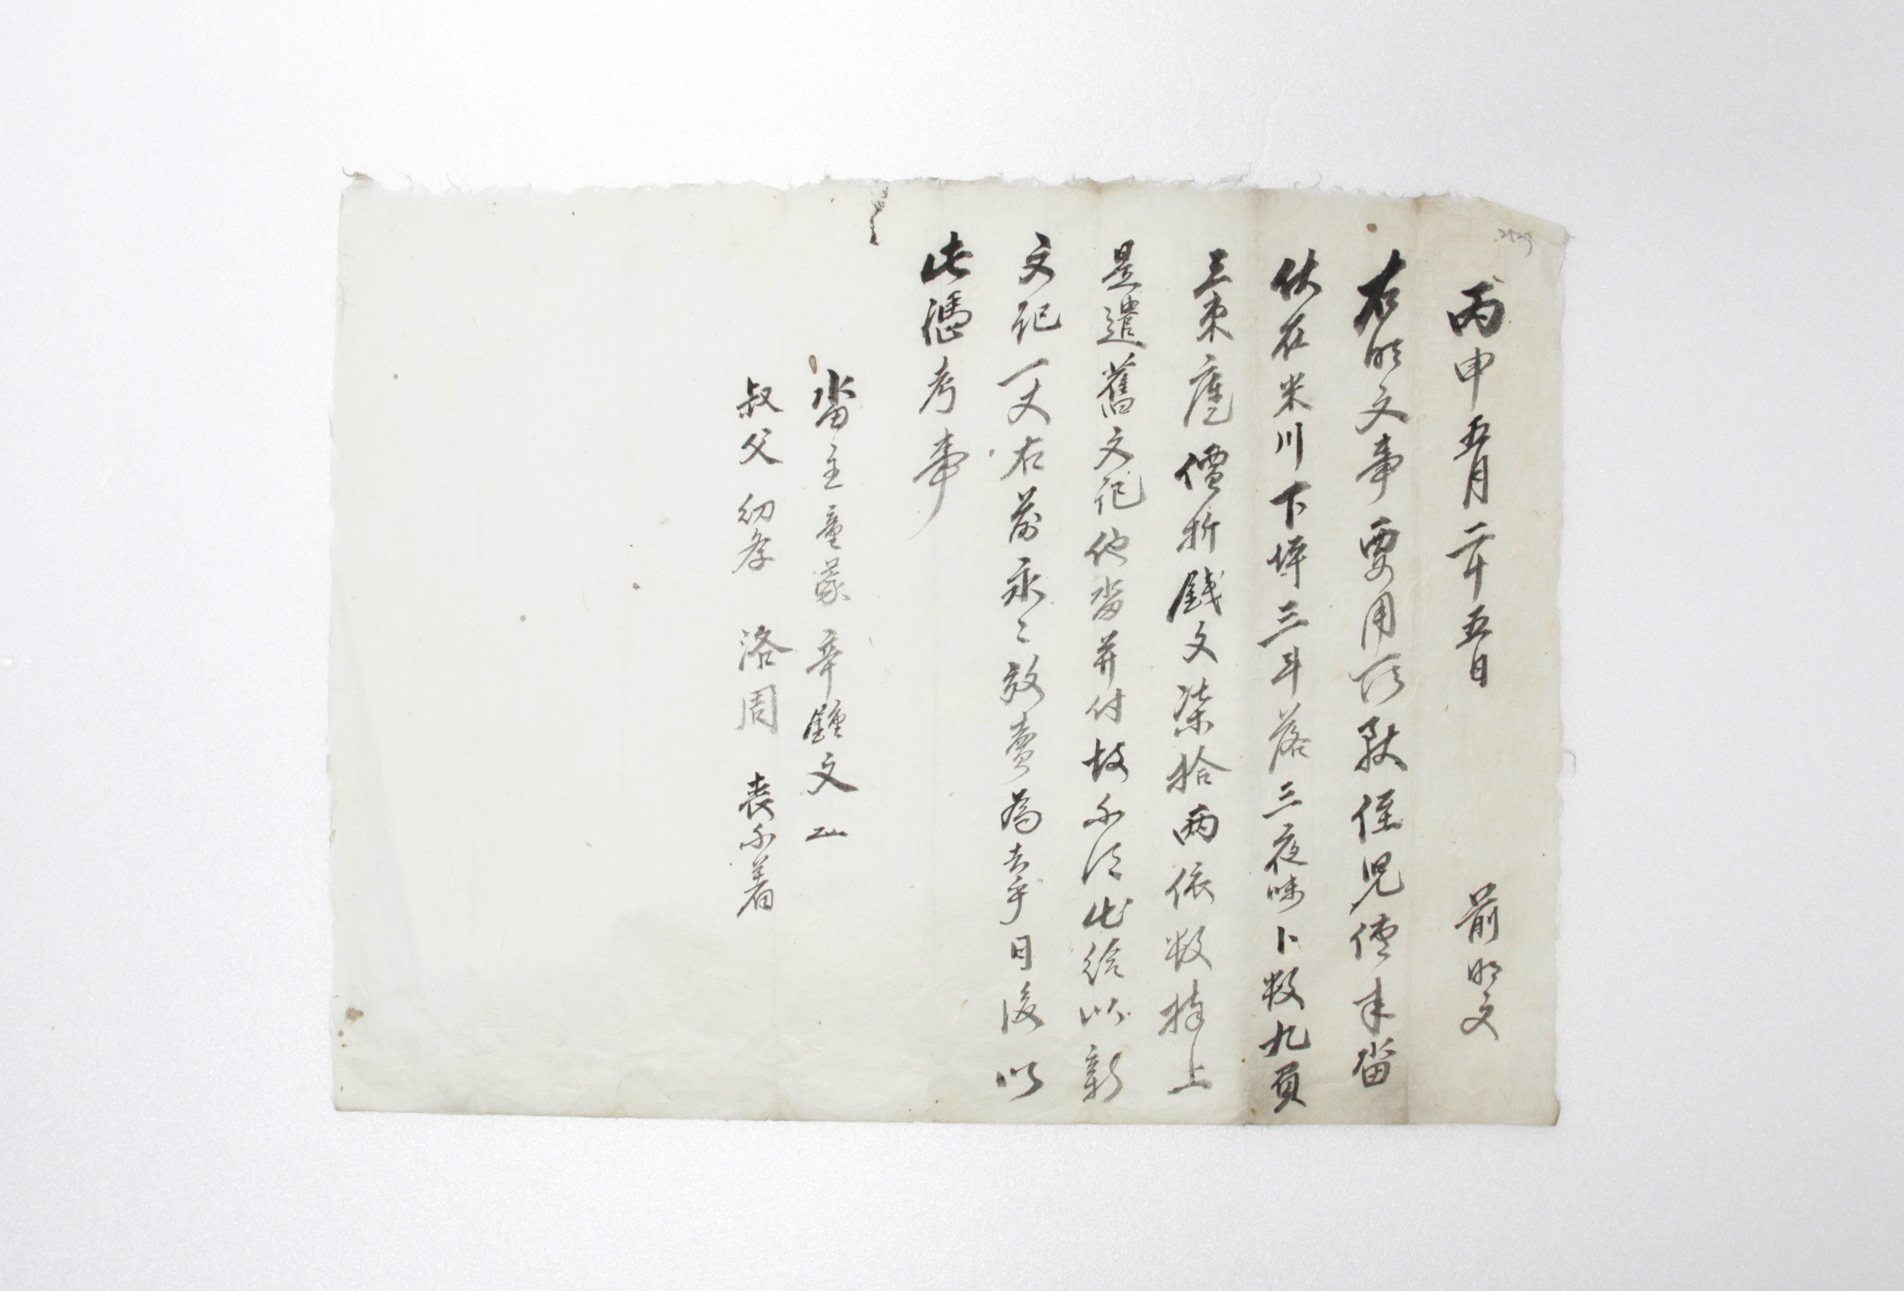 丙申五月二十五日 前明文
右明文事要用所致侄兒價來畓
伏在米川下坪三斗落三夜味卜數九負
三束㢱價折錢文柒拾兩依數捧上
是遣舊文記他畓并付故不得出給以新
文記一丈右前永〻放賣爲去乎日後以
此憑考事
畓主童蒙 辛鍾文
叔父幼學 洛周 喪不着
2529